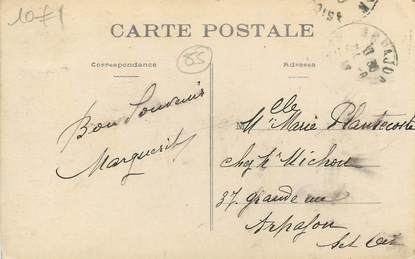 10 f
85
CARTE POSTALE
Correspondance
Adresse
Bon Souvenir
Marguerite
Melle Marie Plantecoste
chez Mr Michon
37 grande rue
Arpajon
Set Oise